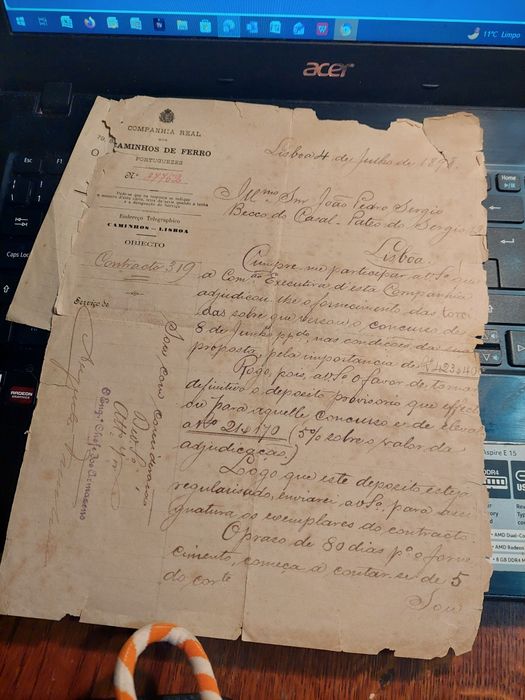 11°C Limpo
acer
COMPANHIA REAL
DOS
CAMINHOS DE FERRO
PORTUGUEZES
N.º
Endereço Telegraphico
CAMINHOS — LISBOA
OBJECTO
Contracto 319
Serviço de
Lisboa 4 de Julho de 1898.
Illmo Snr João Pedro Sergio
Becco do Casal - Pateo do Sergio
Lisboa.
Cumpre-me participar a V. Sª que
a Comão Executiva d'esta Companhia
adjudicou-lhe o fornecimento das
das sobre que versou o concurso de
8 de Junho ppdo, nas condições da sua
proposta, pela importancia de
Rogo, pois, a V. Sª o favor de tornar
definitivo o deposito provisorio que effect
ou para aquelle concurso e de elevar
a Rs 21$170 (5% sobre o valor da
adjudicação.)
Logo que este deposito esteja
regularisado, enviarei a V. Sª para assi
gnatura os exemplares do contracto.
O praso de 80 dias pª o forne
cimento, começa a contar-se de 5
do corte
Sou
Sou com consideração
De V. Sª
O Engº Chefe dos Armazens
Caps Lo
Home
AMD
RADEON
GRAPHICS
Aspire E 15
DDR4
AMD Dual-Co
AMD Radeon
8 GB DDR4 M